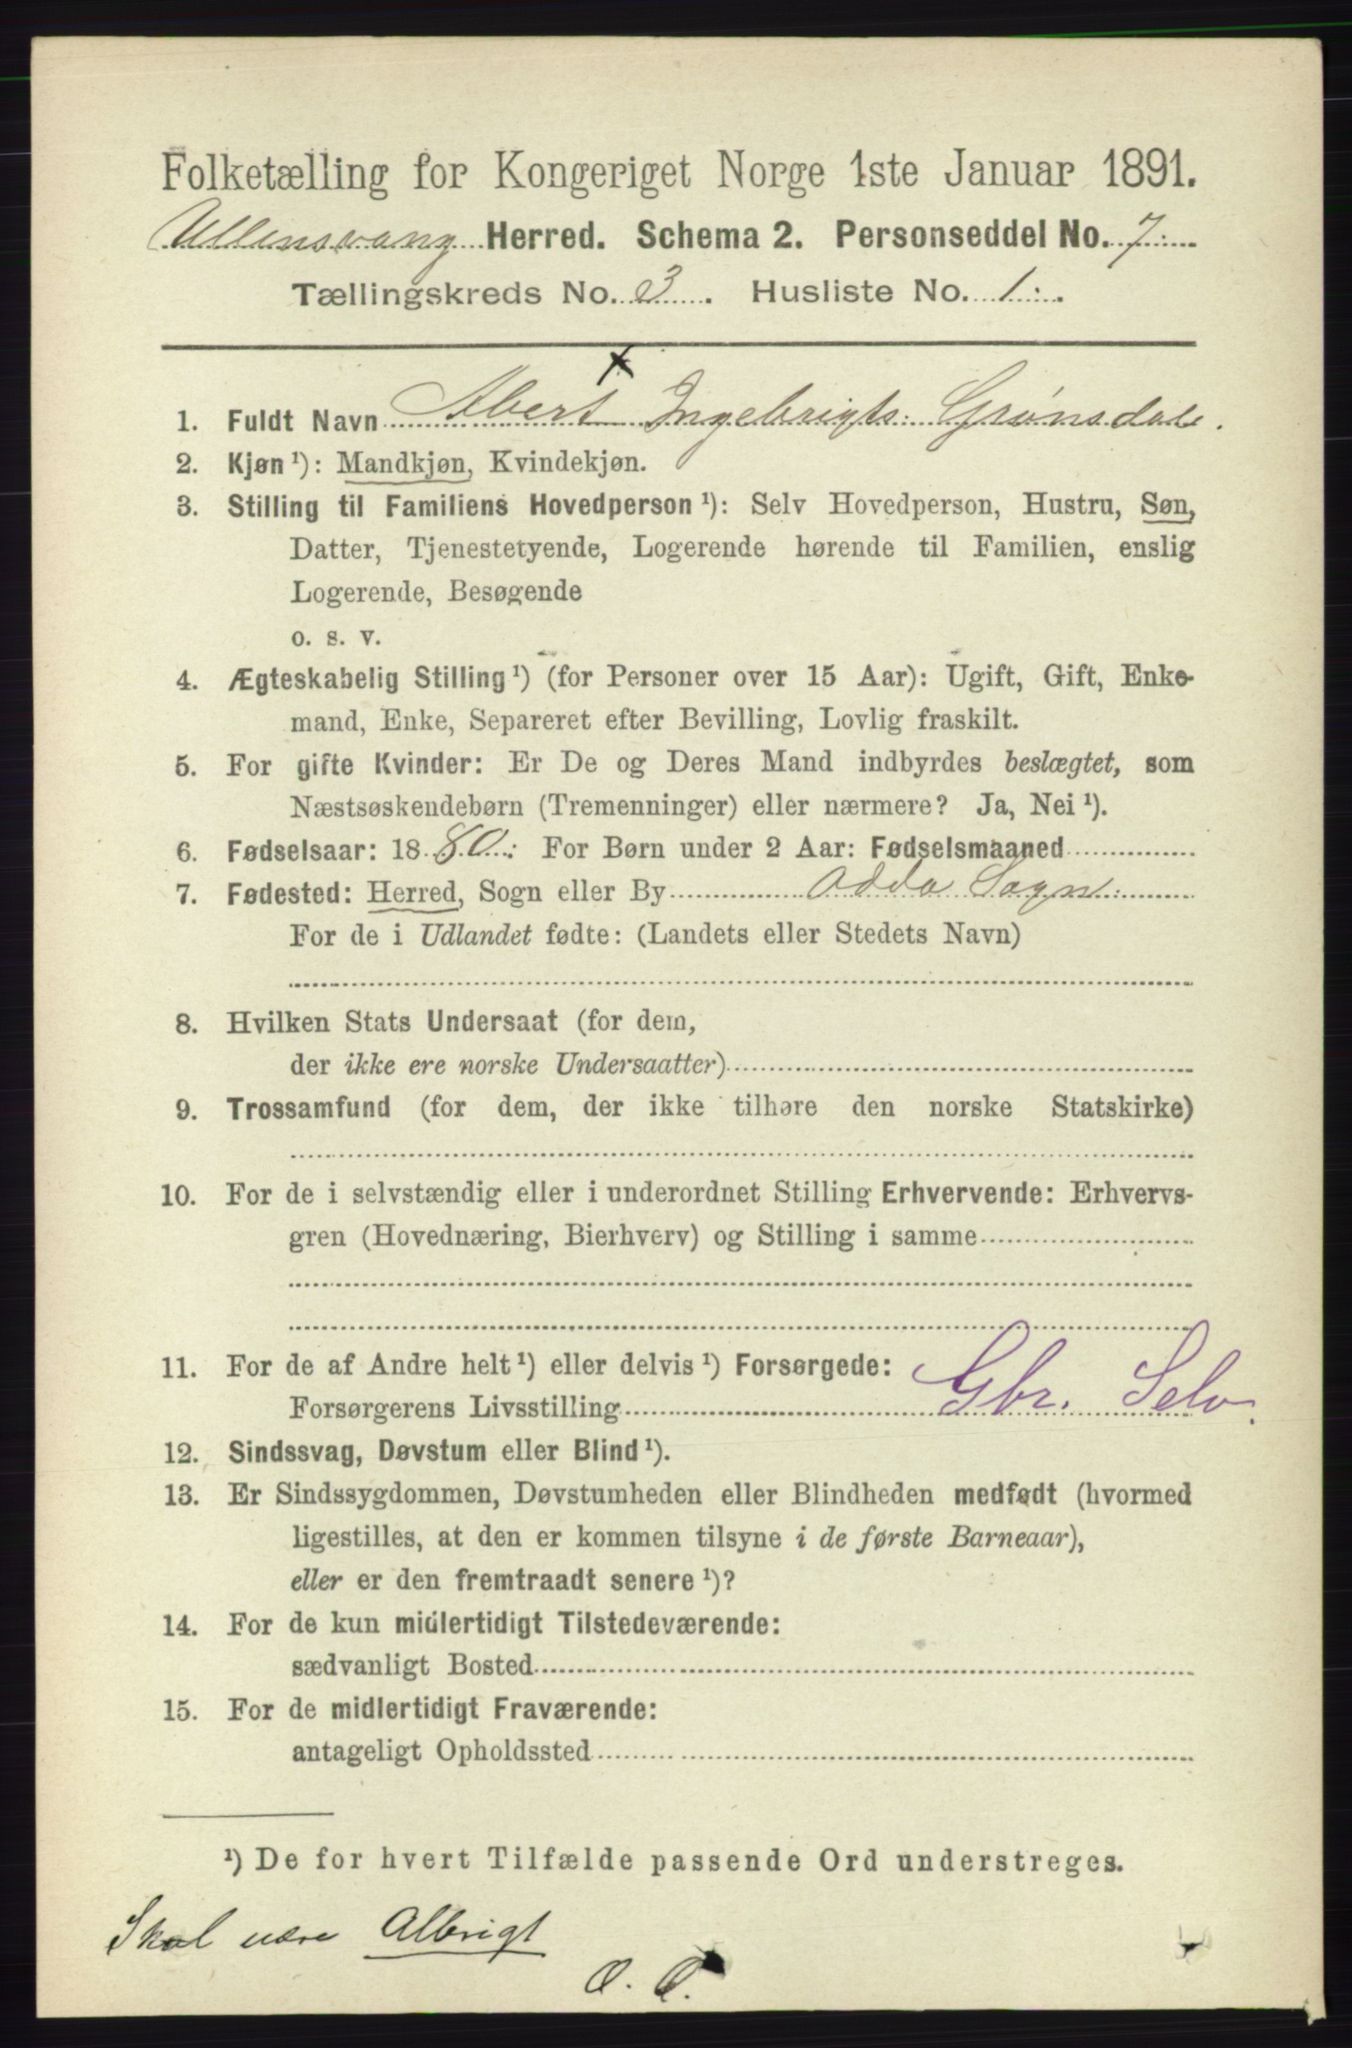 Folketælling for Kongeriget Norge 1ste Januar 1891.
Ullensvang Herred. Schema 2. Personseddel No. 7.
Tællingskreds No. 3. Husliste No. 1.
x
1. Fuldt Navn Abert Ingebrigts. Grønsdale.
2. Kjøn ¹): Mandkjøn, Kvindekjøn.
3. Stilling til Familiens Hovedperson ¹): Selv Hovedperson, Hustru, Søn,
Datter, Tjenestetyende, Logerende hørende til Familien, enslig
Logerende, Besøgende
o. s. v.
4. Ægteskabelig Stilling ¹) (for Personer over 15 Aar): Ugift, Gift, Enke-
mand, Enke, Separeret efter Bevilling, Lovlig fraskilt.
5. For gifte Kvinder: Er De og Deres Mand indbyrdes beslægtet, som
Næstsøskendebørn (Tremenninger) eller nærmere? Ja, Nei ¹).
6. Fødselsaar: 1880. For Børn under 2 Aar: Fødselsmaaned
7. Fødested: Herred, Sogn eller By Odda Sogn.
For de i Udlandet fødte: (Landets eller Stedets Navn)
8. Hvilken Stats Undersaat (for dem,
der ikke ere norske Undersaatter)
9. Trossamfund (for dem, der ikke tilhøre den norske Statskirke)
10. For de i selvstændig eller i underordnet Stilling Erhvervende: Erhvervs-
gren (Hovednæring, Bierhverv) og Stilling i samme
11. For de af Andre helt ¹) eller delvis ¹) Forsørgede:
Forsørgerens Livsstilling Gbr. Selv.
12. Sindssvag, Døvstum eller Blind ¹).
13. Er Sindssygdommen, Døvstumheden eller Blindheden medfødt (hvormed
ligestilles, at den er kommen tilsyne i de første Barneaar),
eller er den fremtraadt senere ¹)?
14. For de kun midlertidigt Tilstedeværende:
sædvanligt Bosted
15. For de midlertidigt Fraværende:
antageligt Opholdssted
¹) De for hvert Tilfælde passende Ord understreges.
Skal være Albrigt
O. O.